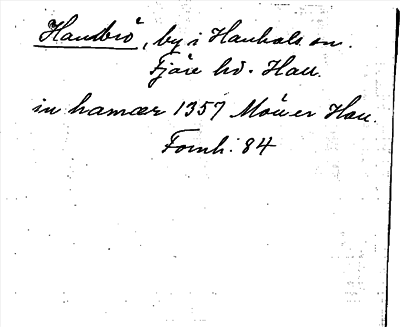 Hambrö, by i Hanhals sn.
Fjäre hd. Hall.
in hamær 1357 Möller Hall.
Fornh. 84